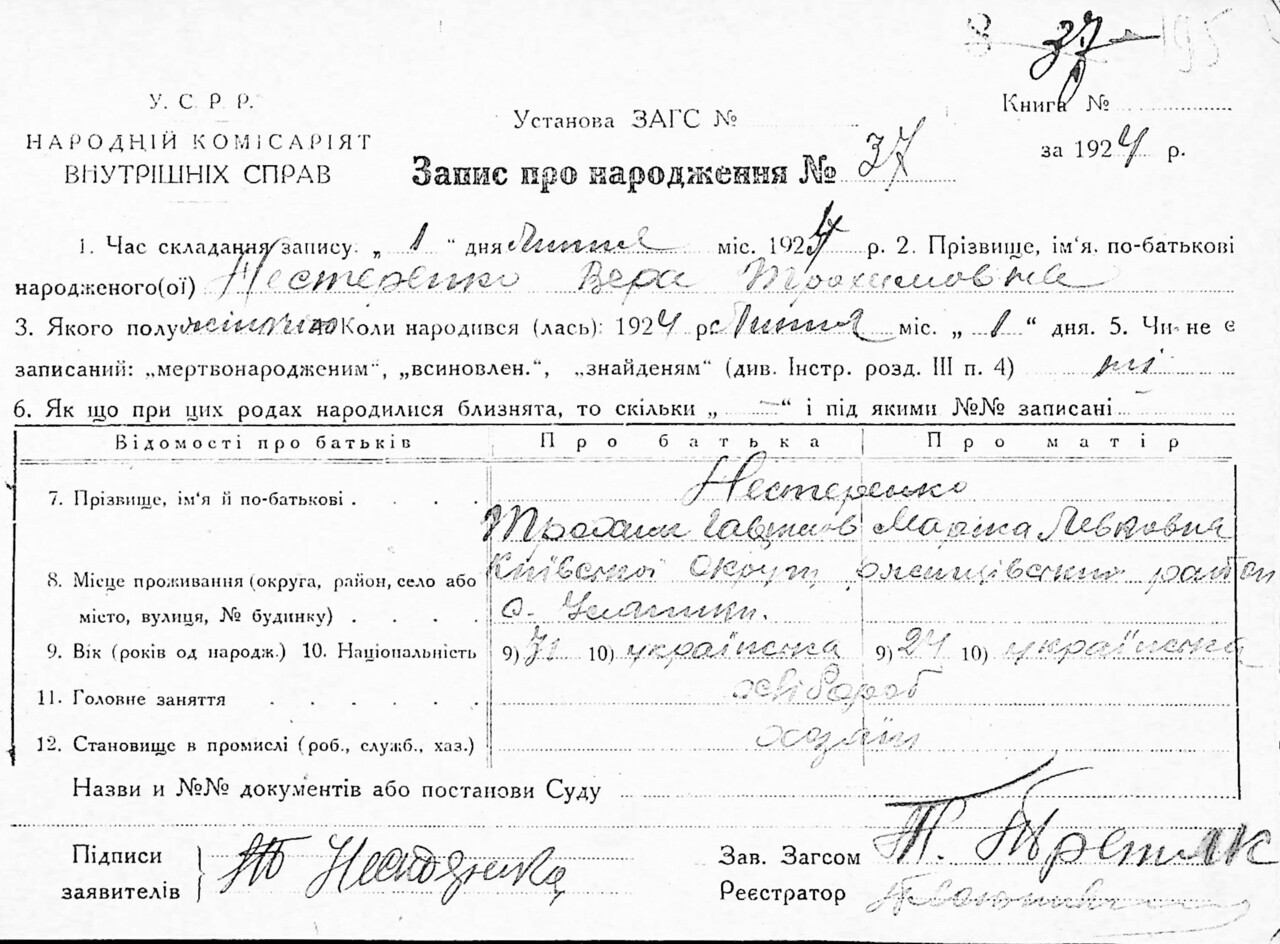 37
Книга №
У. С. Р. Р.
НАРОДНІЙ КОМІСАРІЯТ
ВНУТРІШНІХ СПРАВ
Установа ЗАГС №
за 1924 р.
Запис про народження № 37
1. Час складання запису. „ 1 “ дня Липня міс. 1924 р. 2. Прізвище, ім'я, по-батькові
народженого(ої) Нестеренко Вера Трохимовна
3. Якого полу жіночого Коли народився (лась): 1924 р. Липня міс. „ 1 “ дня. 5. Чи не є
записаний: „мертвонародженим“, „всиновлен.“, „знайденям“ (див. Інстр. розд. III п. 4) ні
6. Як що при цих родах народилися близнята, то скільки „ — “ і під якими №№ записані
Відомості про батьків Про батька Про матір
7. Прізвище, ім'я й по-батькові . . . . Нестеренко
Трохим Марія Левковна
8. Місце проживання (округа, район, село або Київської округи район
місто, вулиця, № будинку) . . . . с.
9. Вік (років од народж.) 10. Національність 9) 31 10) українська 9) 24 10) українська
11. Головне заняття . . . . . хлібороб
12. Становище в промислі (роб., служб., хаз.) хозяїн
Назви и №№ документів або постанови Суду
Підписи
заявителів
Т Нестеренко
Зав. Загсом Т. Третяк
Реєстратор